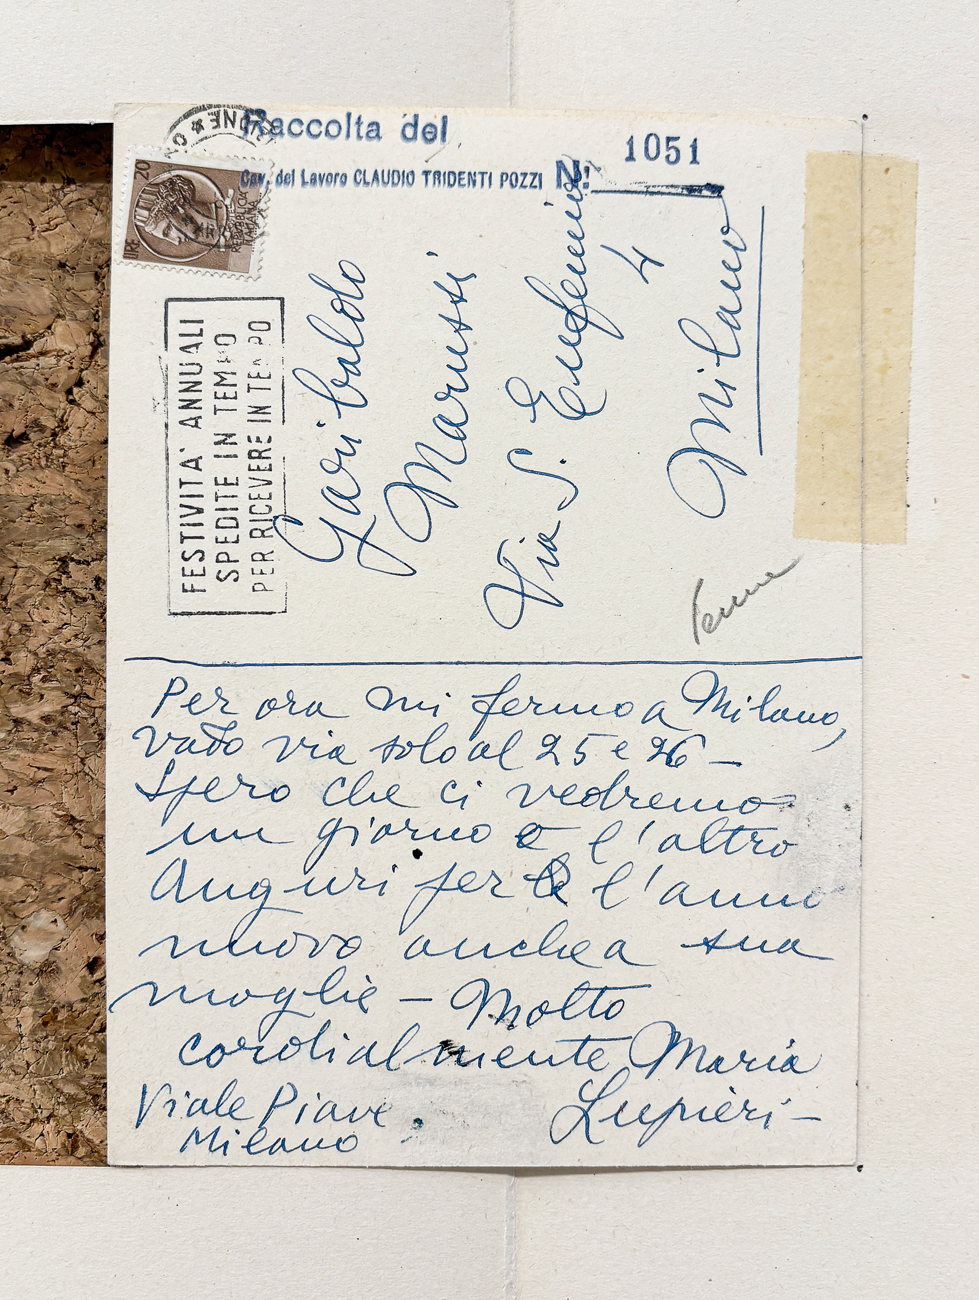 Raccolta del
Cav. del Lavoro CLAUDIO TRIDENTI POZZI N: 1051
20
LIRE
REPUBBLICA
ITALIANA
FESTIVITA' ANNUALI
SPEDITE IN TEMPO
PER RICEVERE IN TEMPO
Garibaldo
Marussi
Via S. Eufemia
4
Milano
Per ora mi fermo a Milano,
vado via solo al 25 e 26 –
Spero che ci vedremo
un giorno o l'altro
Auguri per l'anno
nuovo anche a sua
moglie – Molto
cordialmente Maria
Lupieri –
Viale Piave
Milano